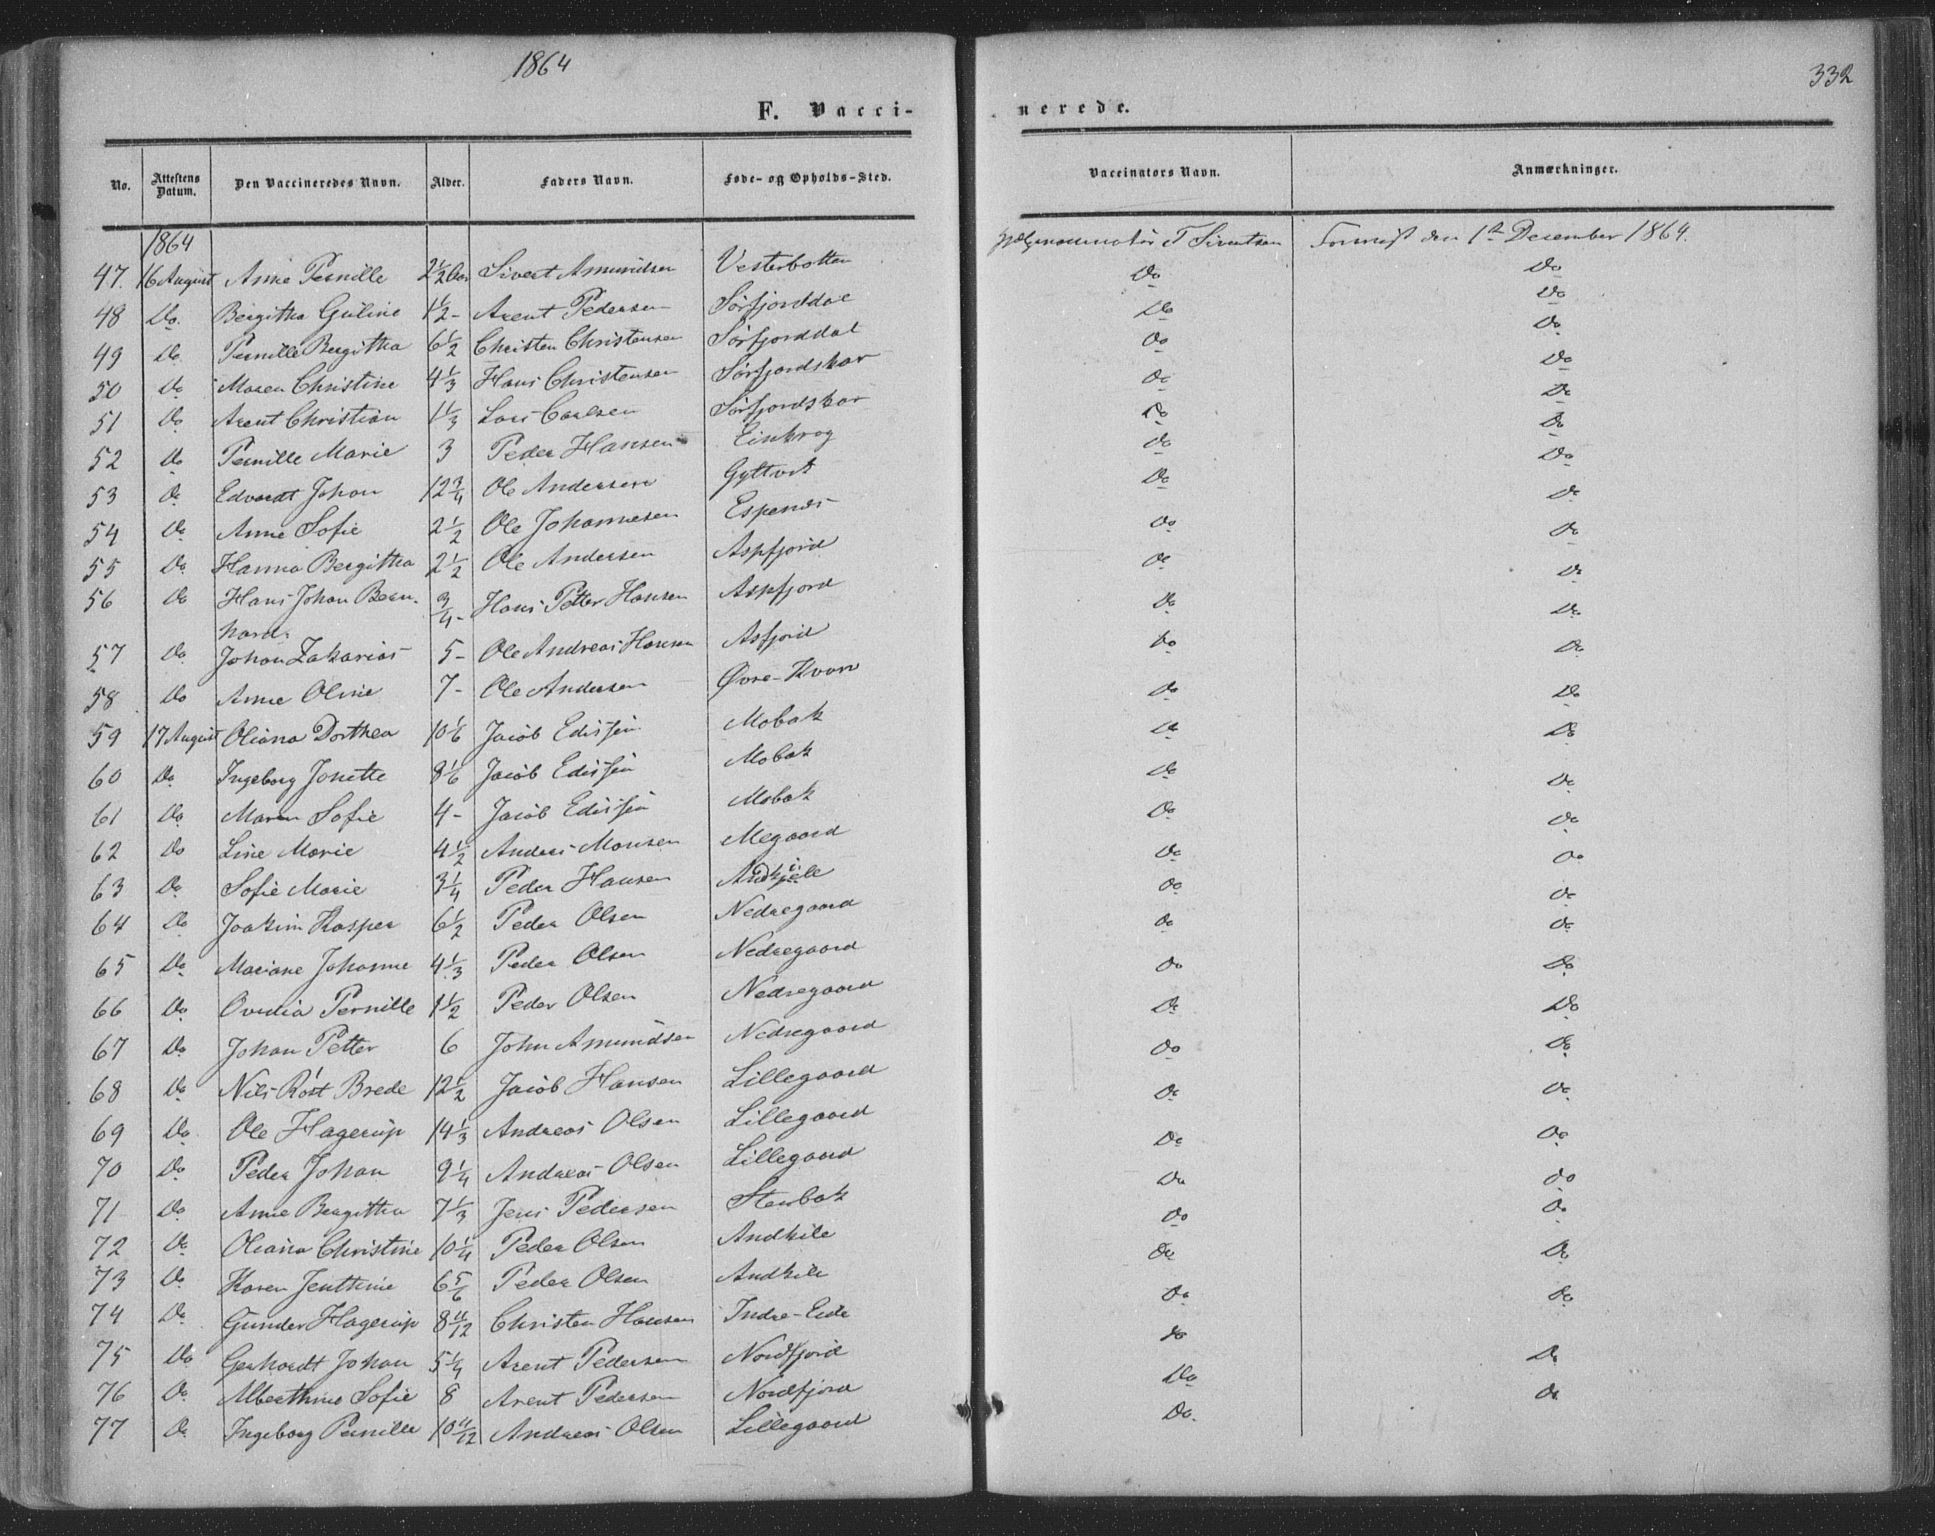 1864
332
F. Vacci-
nerede.
No. Attestens Datum. Den Vaccineredes Navn. Alder. Faders Navn. Føde- og Opholds-Sted. Vaccinators Navn. Anmærkninger.
1864
47. 16 August Anne Pernille 2 1/2 Sivert Amundsen Vesterbotten Do Do
48 Do. Bergitha Guline 1 1/2 - Arent Pedersen Sørfjorddal Do Do
49 Do Pernille Bergitha 6 1/2 Christen Christensen Sørfjorddal Do Do
50 Do Maren Christine 4 1/3 Hans Christensen Sørfjordskar Do Do
51 Do Arent Christian 1 1/3 Lars Carlsen Sørfjordskar Do Do
52 Do Pernille Marie 3 Peder Hansen Einkrog Do Do
53 Do Edvardt Johan 12 3/4 Ole Andersen Gyltvik Do Do
54 Do Anne Sofie 2 1/2 Ole Johannesen Espenæs Do Do
55 Do Hanna Bergitha 2 1/2 Ole Andersen Aspfjord Do Do
56 Do Hans Johan Bern- 3/4 - Hans Petter Hansen Aspfjord Do Do
hard.
57 Do Johan Zakarias 5 - Ole Andreas Hansen Asfjord Do Do
58 Do Anne Oline 7 - Ole Andersen Øvre-Kvarv Do Do
59 17 August Oliana Dorthea 10 1/6 Jacob Edissen Mobak Do Do
60 Do Ingeborg Jonette 8 1/6 Jacob Edissen Mobak Do Do
61 Do Maren Sofie 4 - Jacob Edissen Mobak Do Do
62 Do Line Marie 4 1/2 Anders Monsen Megaard Do Do
63 Do Sofie Marie 3 1/4 Peder Hansen Andkile Do Do
64 Do Joakim Kasper 6 1/2 Peder Olsen Nedregaard Do Do
65 Do Mariane Johanne 4 1/3 Peder Olsen Nedregaard Do Do
66 Do Ovedia Pernille 1 1/2 Peder Olsen Nedregaard Do Do
67 Do Johan Petter 6 John Amundsen Nedregaard Do Do
68 Do Nils Røst Brede 12 1/2 Jacob Hansen Lillegaard Do Do
69 Do Ole Hagerup 14 1/3 Andreas Olsen Lillegaard Do Do
70 Do Peder Johan 9 1/4 Andreas Olsen Lillegaard Do Do
71 Do Anne Bergitha 7 1/3 Jens Pedersen Stenbak Do Do
72 Do Oliana Christine 10 1/4 Peder Olsen Andkile Do Do
73 Do Karen Jenthine 6 5/6 Peder Olsen Andkile Do Do
74 Do Gunder Hagerup 8 11/12 Christen Hansen Indre-Eide Do Do
75 Do Gerhardt Johan 5 1/4 Arent Pedersen Nordfjord Do Do
76 Do Alberthine Sofie 8 Arent Pedersen Nordfjord Do Do
77 Do Ingeborg Pernille 10 11/12 Andreas Olsen Lillegaard Do.
den 1ste December 1864.